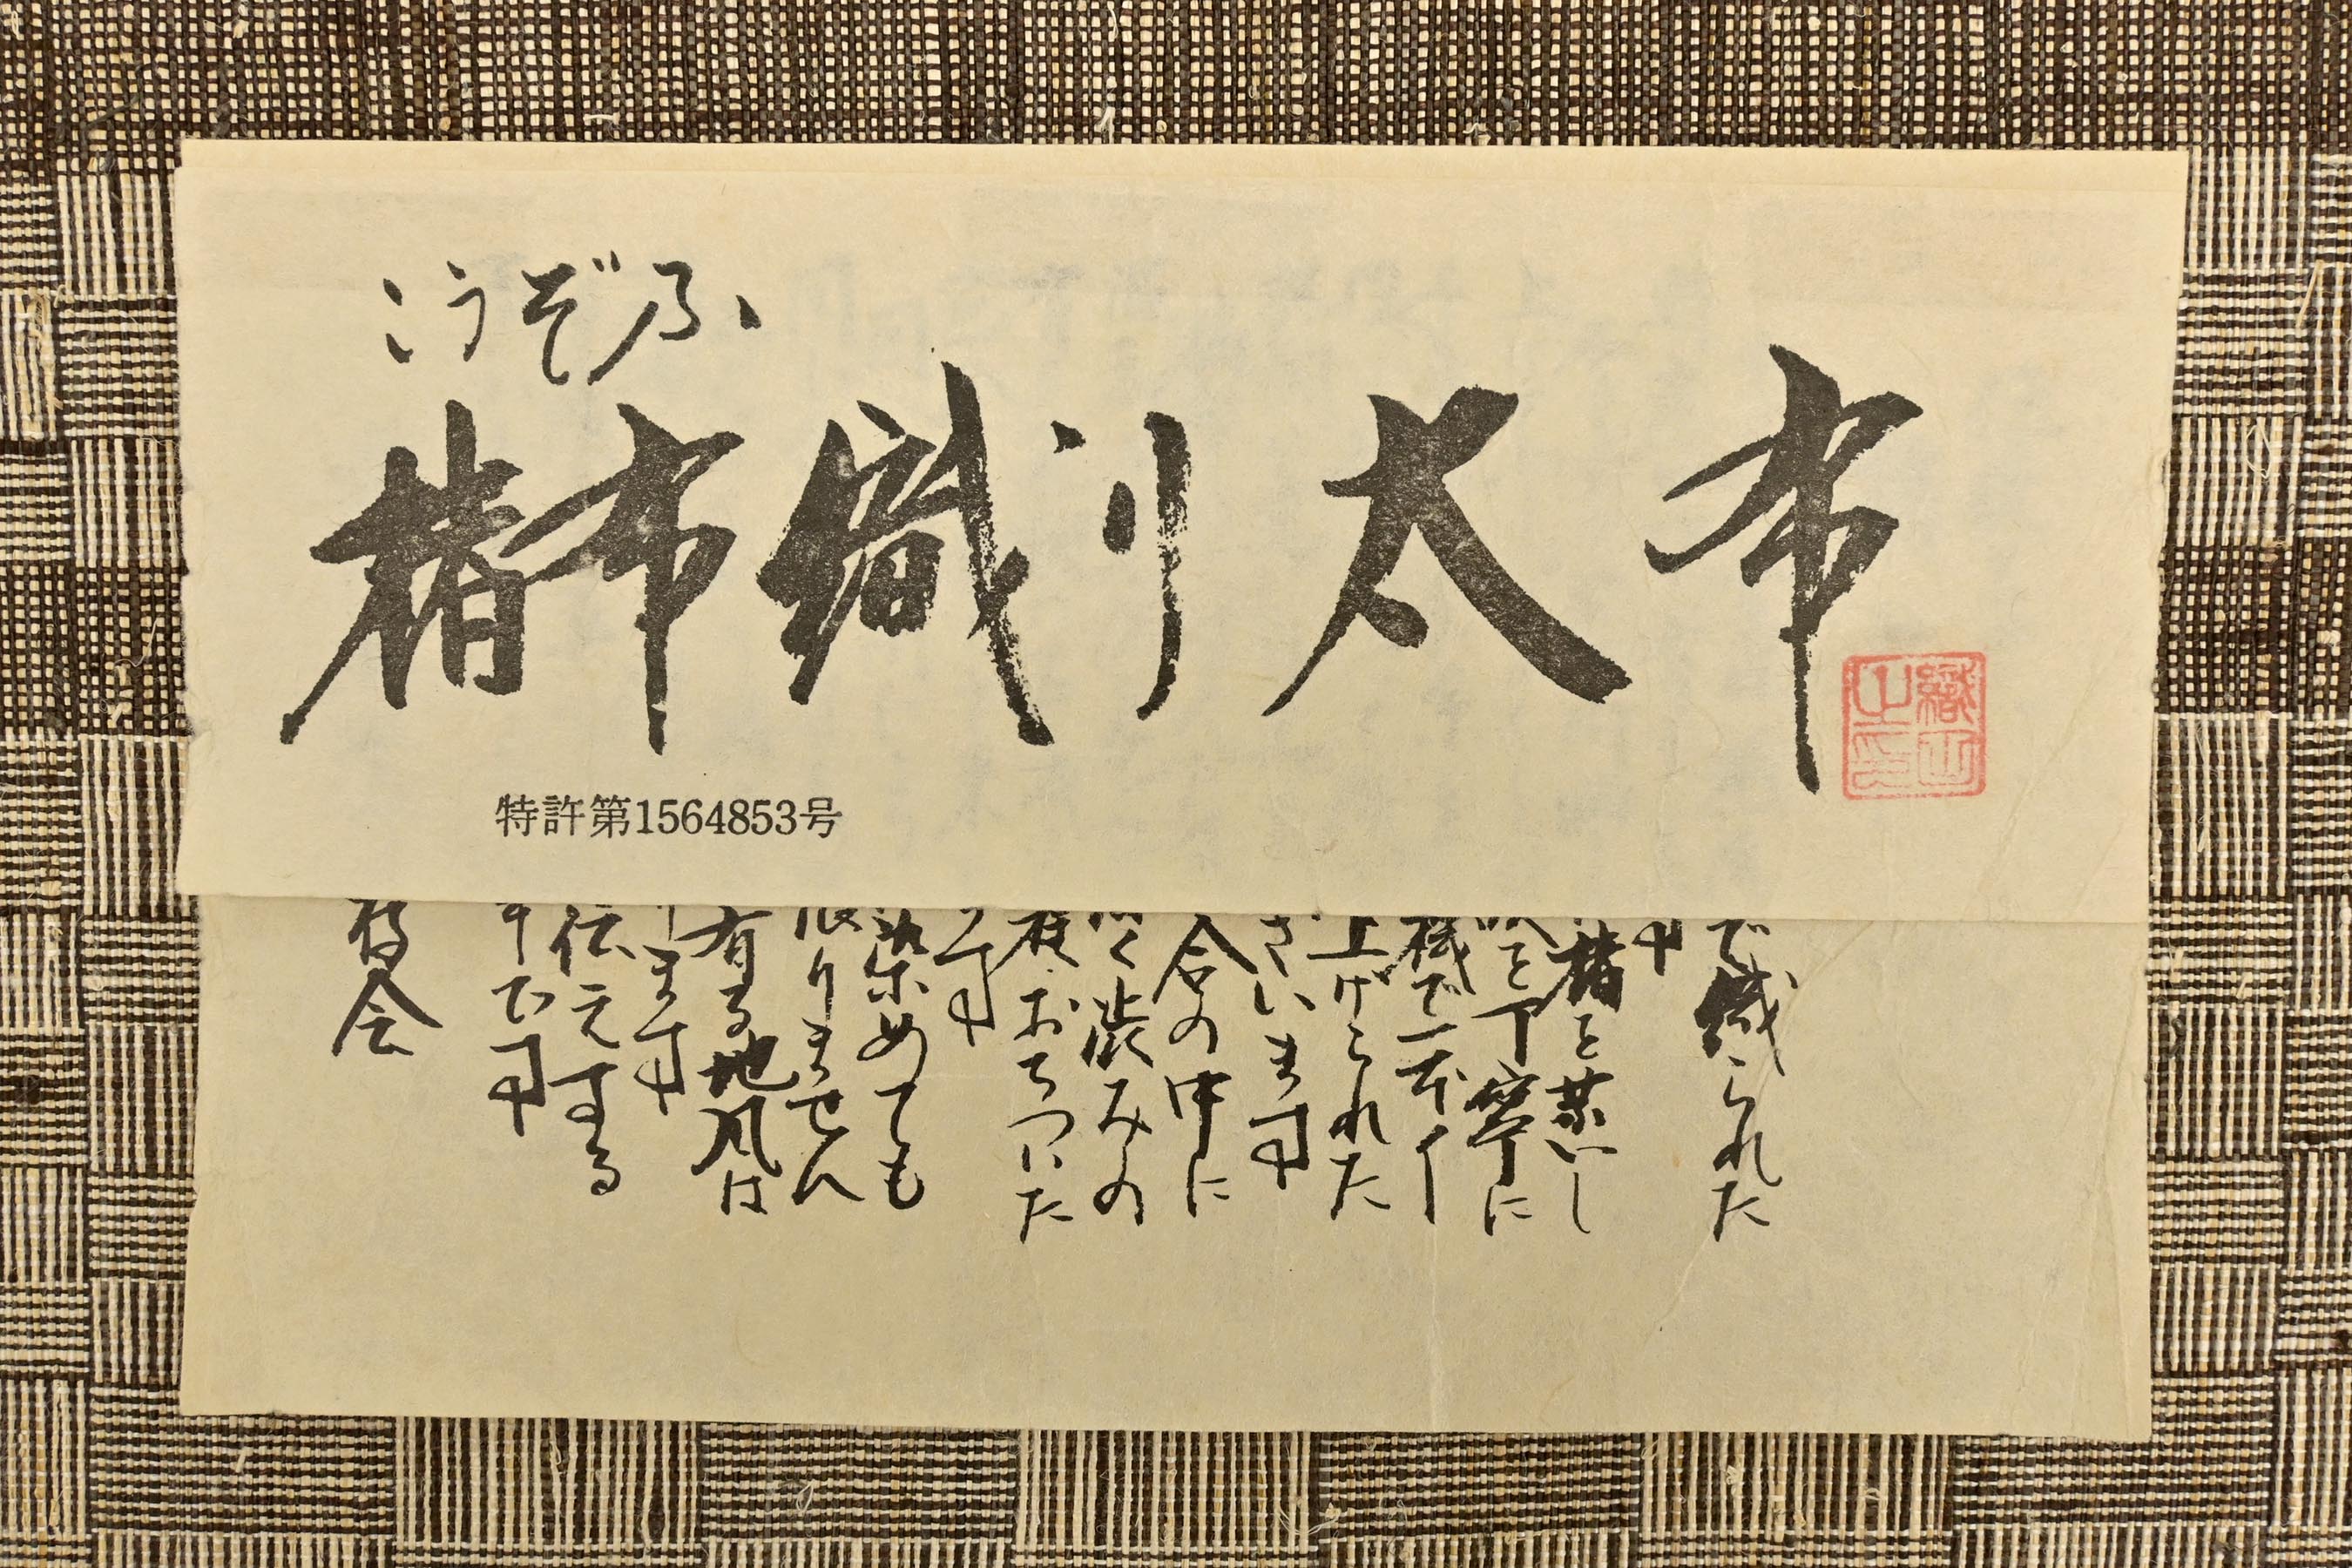 こうぞふ
楮布織り太布
特許第1564853号
織山之印
で織られた
す
楮を蒸し
を丁寧に
機で一本一
上げられた
ざいます
合の中に
く渋みの
程おちついた
です
染めても
限りません
有る地風は
ます
伝えする
すです
待会